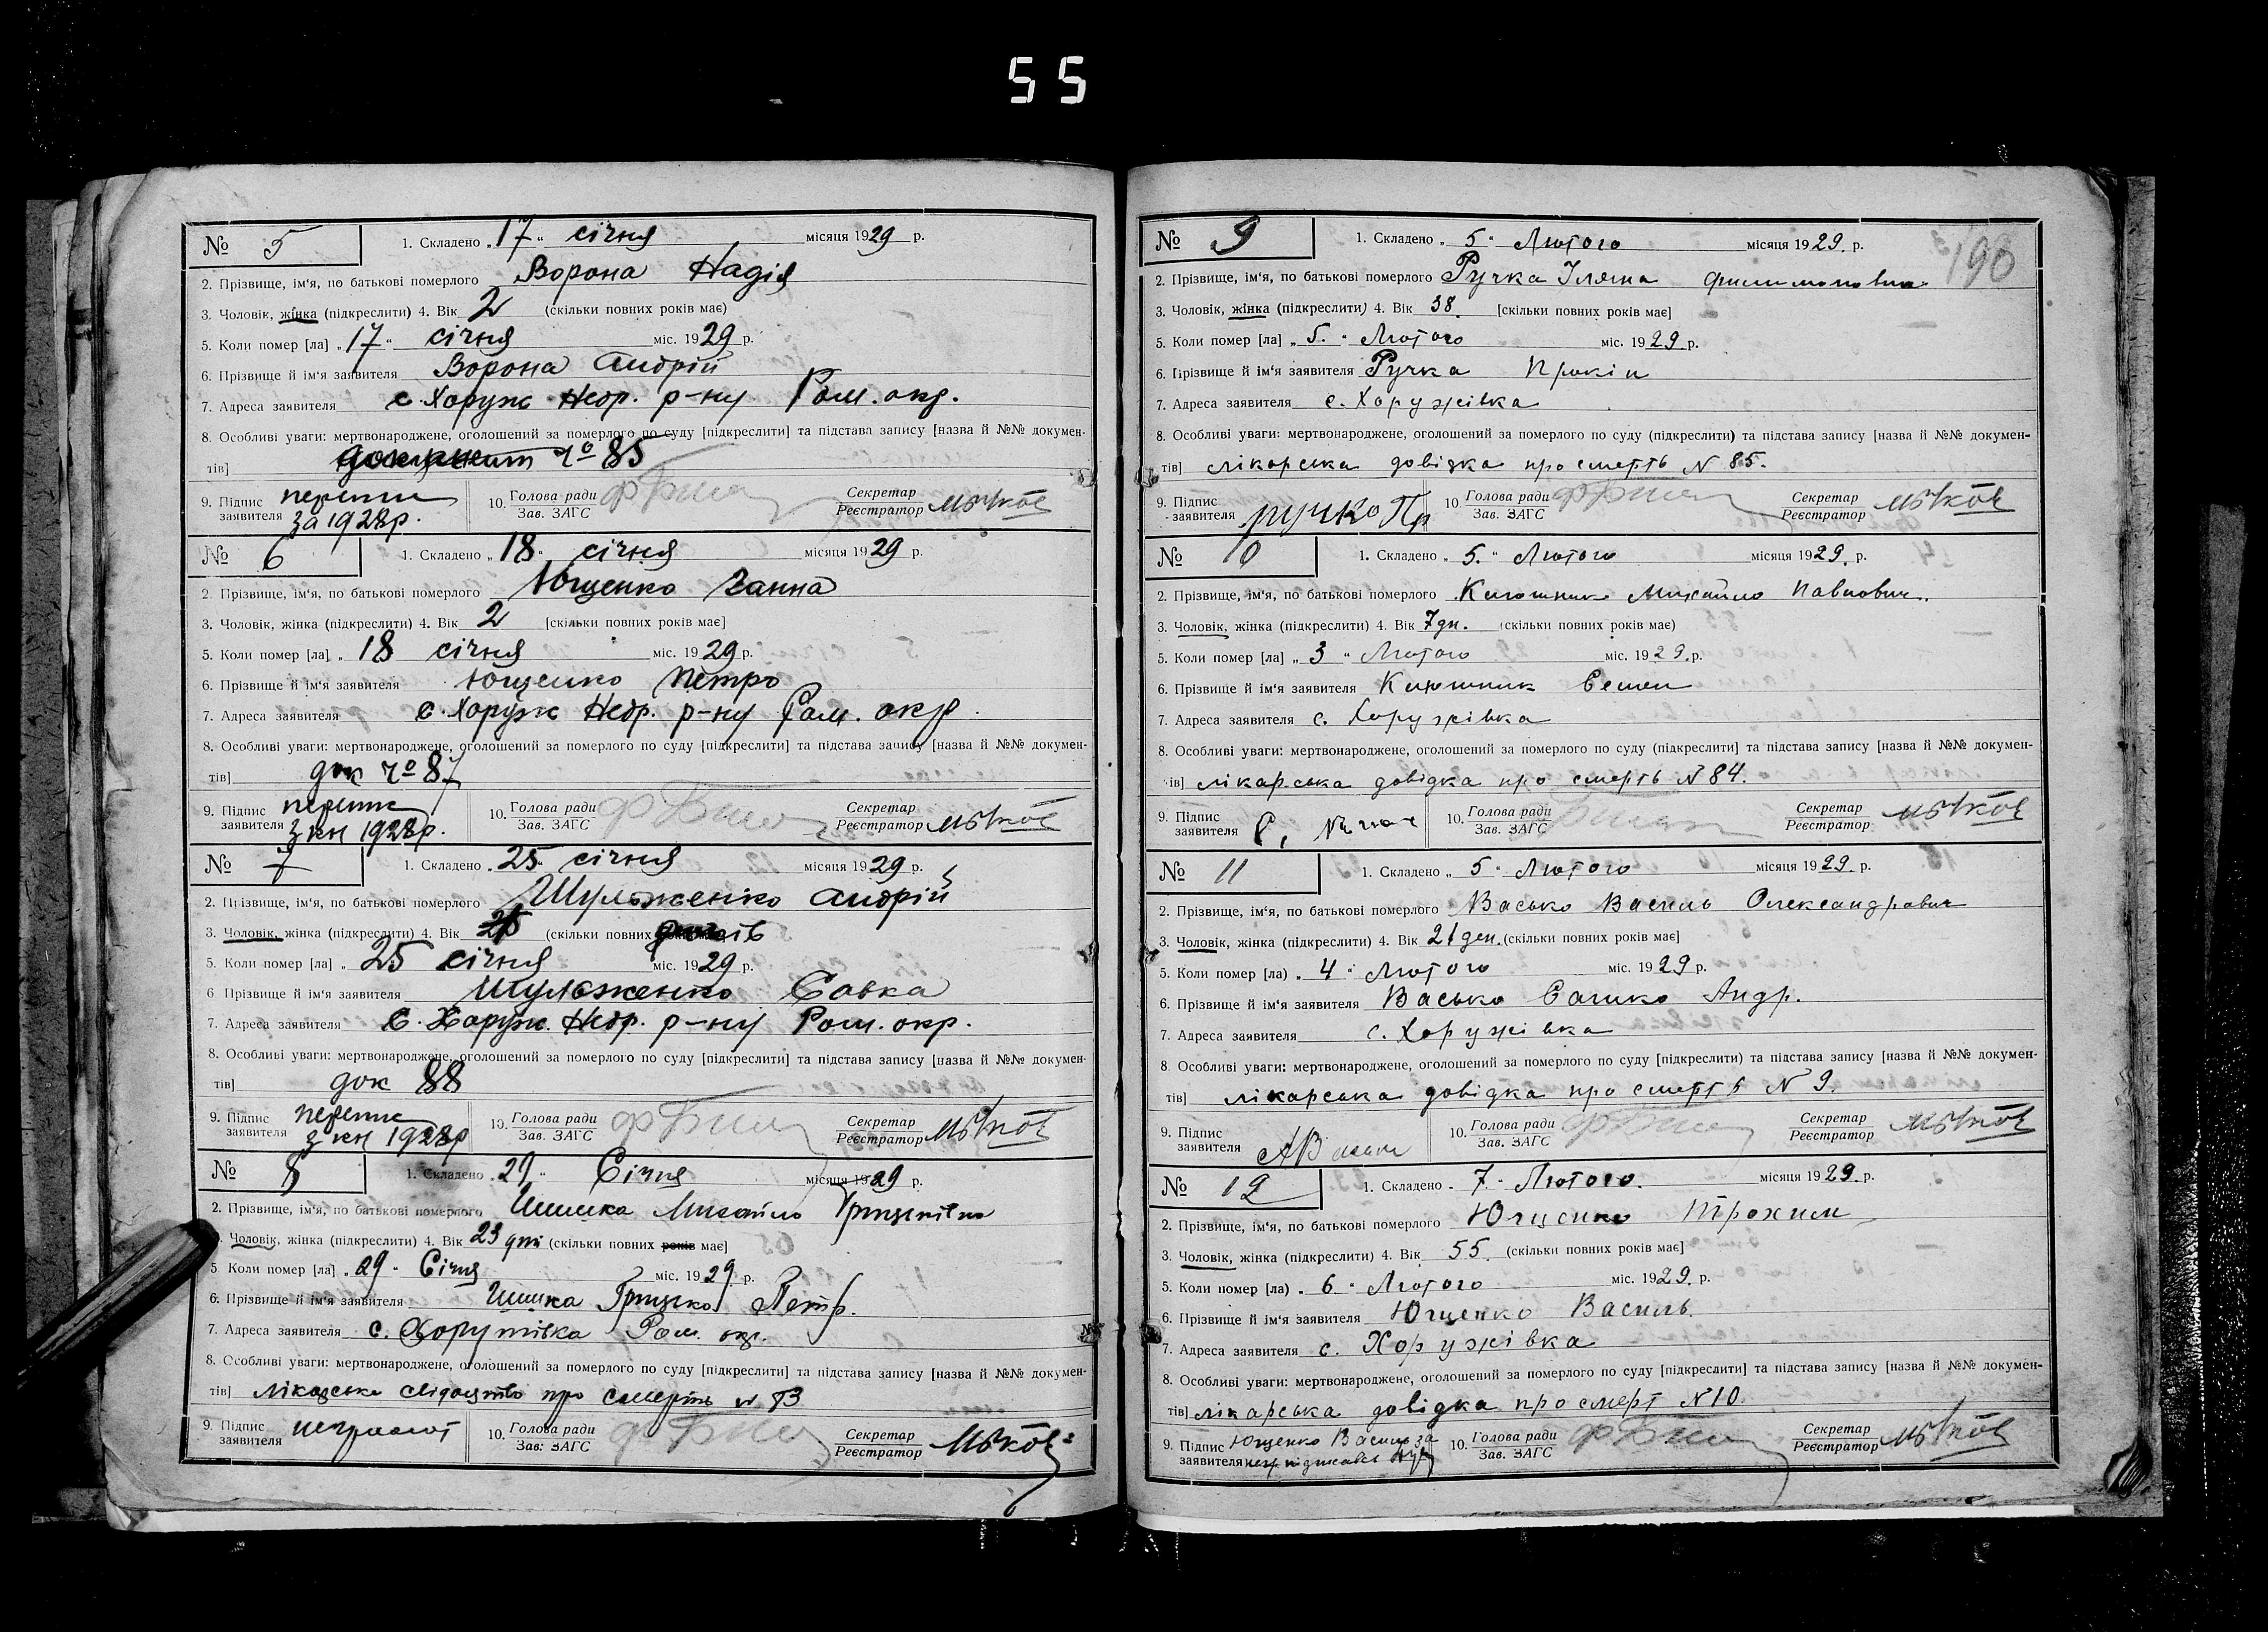 55
№ 5
1. Складено „17“ січня місяця 1929 р.
2. Прізвище, ім'я, по батькові померлого Ворона Надія
3. Чоловік, жінка (підкреслити) 4. Вік 2 (скільки повних років має)
5. Коли помер [ла] „17“ січня міс. 1929 р.
6. Прізвище й ім'я заявителя Ворона Андрій
7. Адреса заявителя с. Хоруж Недр. р-ну Ром. окр.
8. Особливі уваги: мертвонароджене, оголошений за померлого по суду [підкреслити] та підстава запису [назва й №№ докумен-
тів] документ 85
9. Підпис заявителя за 1928 р. 10. Голова ради Зав. ЗАГС Секретар Реєстратор
№ 6
1. Складено „18“ січня місяця 1929 р.
2. Прізвище, ім'я, по батькові померлого Ющенко Ганна
3. Чоловік, жінка (підкреслити) 4. Вік 2 [скільки повних років має]
5. Коли помер [ла] „18 січня міс. 1929 р.
6. Прізвище й ім'я заявителя Ющенко Петро
7. Адреса заявителя с. Хоруж Недр. р-ну Ром. окр.
8. Особливі уваги: мертвонароджене, оголошений за померлого по суду [підкреслити] та підстава запису [назва й №№ докумен-
тів] док 87
9. Підпис заявителя 1928 р. 10. Голова ради Зав. ЗАГС Секретар Реєстратор
№ 7
1. Складено „25“ січня місяця 1929 р.
2. Прізвище, ім'я, по батькові померлого Шульженко Андрій
3. Чоловік, жінка (підкреслити) 4. Вік (скільки повних
5. Коли помер [ла] „25 січня міс. 1929 р.
6 Прізвище й ім'я заявителя Шульженко Савка
7. Адреса заявителя С. Хоруж. Недр. р-ну Ром. окр.
8. Особливі уваги: мертвонароджене, оголошений за померлого по суду [підкреслити] та підстава запису [назва й №№ докумен-
тів] док 88
9. Підпис заявителя 1928 р 10. Голова ради Зав. ЗАГС Секретар Реєстратор
№ 8
1. Складено „29“ Січня місяця 1929 р.
2. Прізвище, ім'я, по батькові померлого Шишка Михайло
Чоловік, жінка (підкреслити) 4. Вік 23 дні (скільки повних років має]
5 Коли помер [ла] „29“ Січня міс. 1929 р.
6. Прізвище й ім'я заявителя Шишка Грицько Петр.
7. Адреса заявителя с. Хоружівка Ром. окр.
8. Особливі уваги: мертвонароджене, оголошений за померлого по суду [підкреслити] та підстава запису [назва й №№ докумен-
тів] лікарське свідоцтво про смерть
9. Підпис заявителя неграмот 10. Голова ради Зав. ЗАГС Секретар Реєстратор
190
№ 9
1. Складено „5“ Лютого місяця 1929. р.
2. Прізвище, ім'я, по батькові померлого Ручка
3. Чоловік, жінка (підкреслити) 4. Вік 38. [скільки повних років має]
5. Коли помер [ла] „5.“ Лютого міс. 1929 р.
6. Прізвище й ім'я заявителя Ручка Прокіп
7. Адреса заявителя с. Хоружівка
8. Особливі уваги: мертвонароджене, оголошений за померлого по суду (підкреслити) та підстава запису [назва й №№ докумен-
тів] лікарська довідка про смерть N 85.
9. Підпис заявителя ручко Пр 10. Голова ради Зав. ЗАГС Секретар Реєстратор
№ 10
1. Складено „5.“ Лютого місяця 1929. р.
2. Прізвище, ім'я, по батькові померлого Михайло Павлович.
3. Чоловік, жінка (підкреслити) 4. Вік 7 дн. (скільки повних років має)
5. Коли помер [ла] „3“ Лютого міс. 1929. р.
6. Прізвище й ім'я заявителя Семен
7. Адреса заявителя с. Хоружівка
8. Особливі уваги: мертвонароджене, оголошений за померлого по суду (підкреслити] та підстава запису [назва й №№ докумен-
ів] лікарська довідка про смерть N 84.
9. Підпис заявителя 10. Голова ради Зав. ЗАГС Секретар Реєстратор
№ 11
1. Складено „5“ Лютого місяця 1929. р.
2. Прізвище, ім'я, по батькові померлого Васько Василь Олександрович
3. Чоловік, жінка (підкреслити) 4. Вік 21 ден. (скільки повних років має]
5. Коли помер [ла) „4“ Лютого міс. 1929 р.
6. Прізвище й ім'я заявителя Васько Сашко Андр.
7. Адреса заявителя с. Хоружівка
8. Особливі уваги: мертвонароджене, оголошений за померлого по суду [підкреслити) та підстава запису [назва й №№ докумен-
тів] лікарська довідка про смерть N 9.
9. Підпис заявителя 10. Голова ради Зав. ЗАГС Секретар Реєстратор
№ 12
1. Складено „7“ Лютого. місяця 1929. р.
2. Прізвище, ім'я, по батькові померлого Ющенко Трохим
3. Чоловік, жінка (підкреслити) 4. Вік 55. (скільки повних років має]
5. Коли помер [ла) „6“ Лютого міс. 1929. р.
6. Прізвище й ім'я заявителя Ющенко Василь.
7. Адреса заявителя с. Хоружівка
8. Особливі уваги: мертвонароджене, оголошений за померлого по суду [підкреслити] та підстава запису [назва й №№ докумен-
тів] лікарська довідка про смерт N 10.
9. Підпис заявителя Ющенко Василь за 10. Голова ради Зав. ЗАГС Секретар Реєстратор